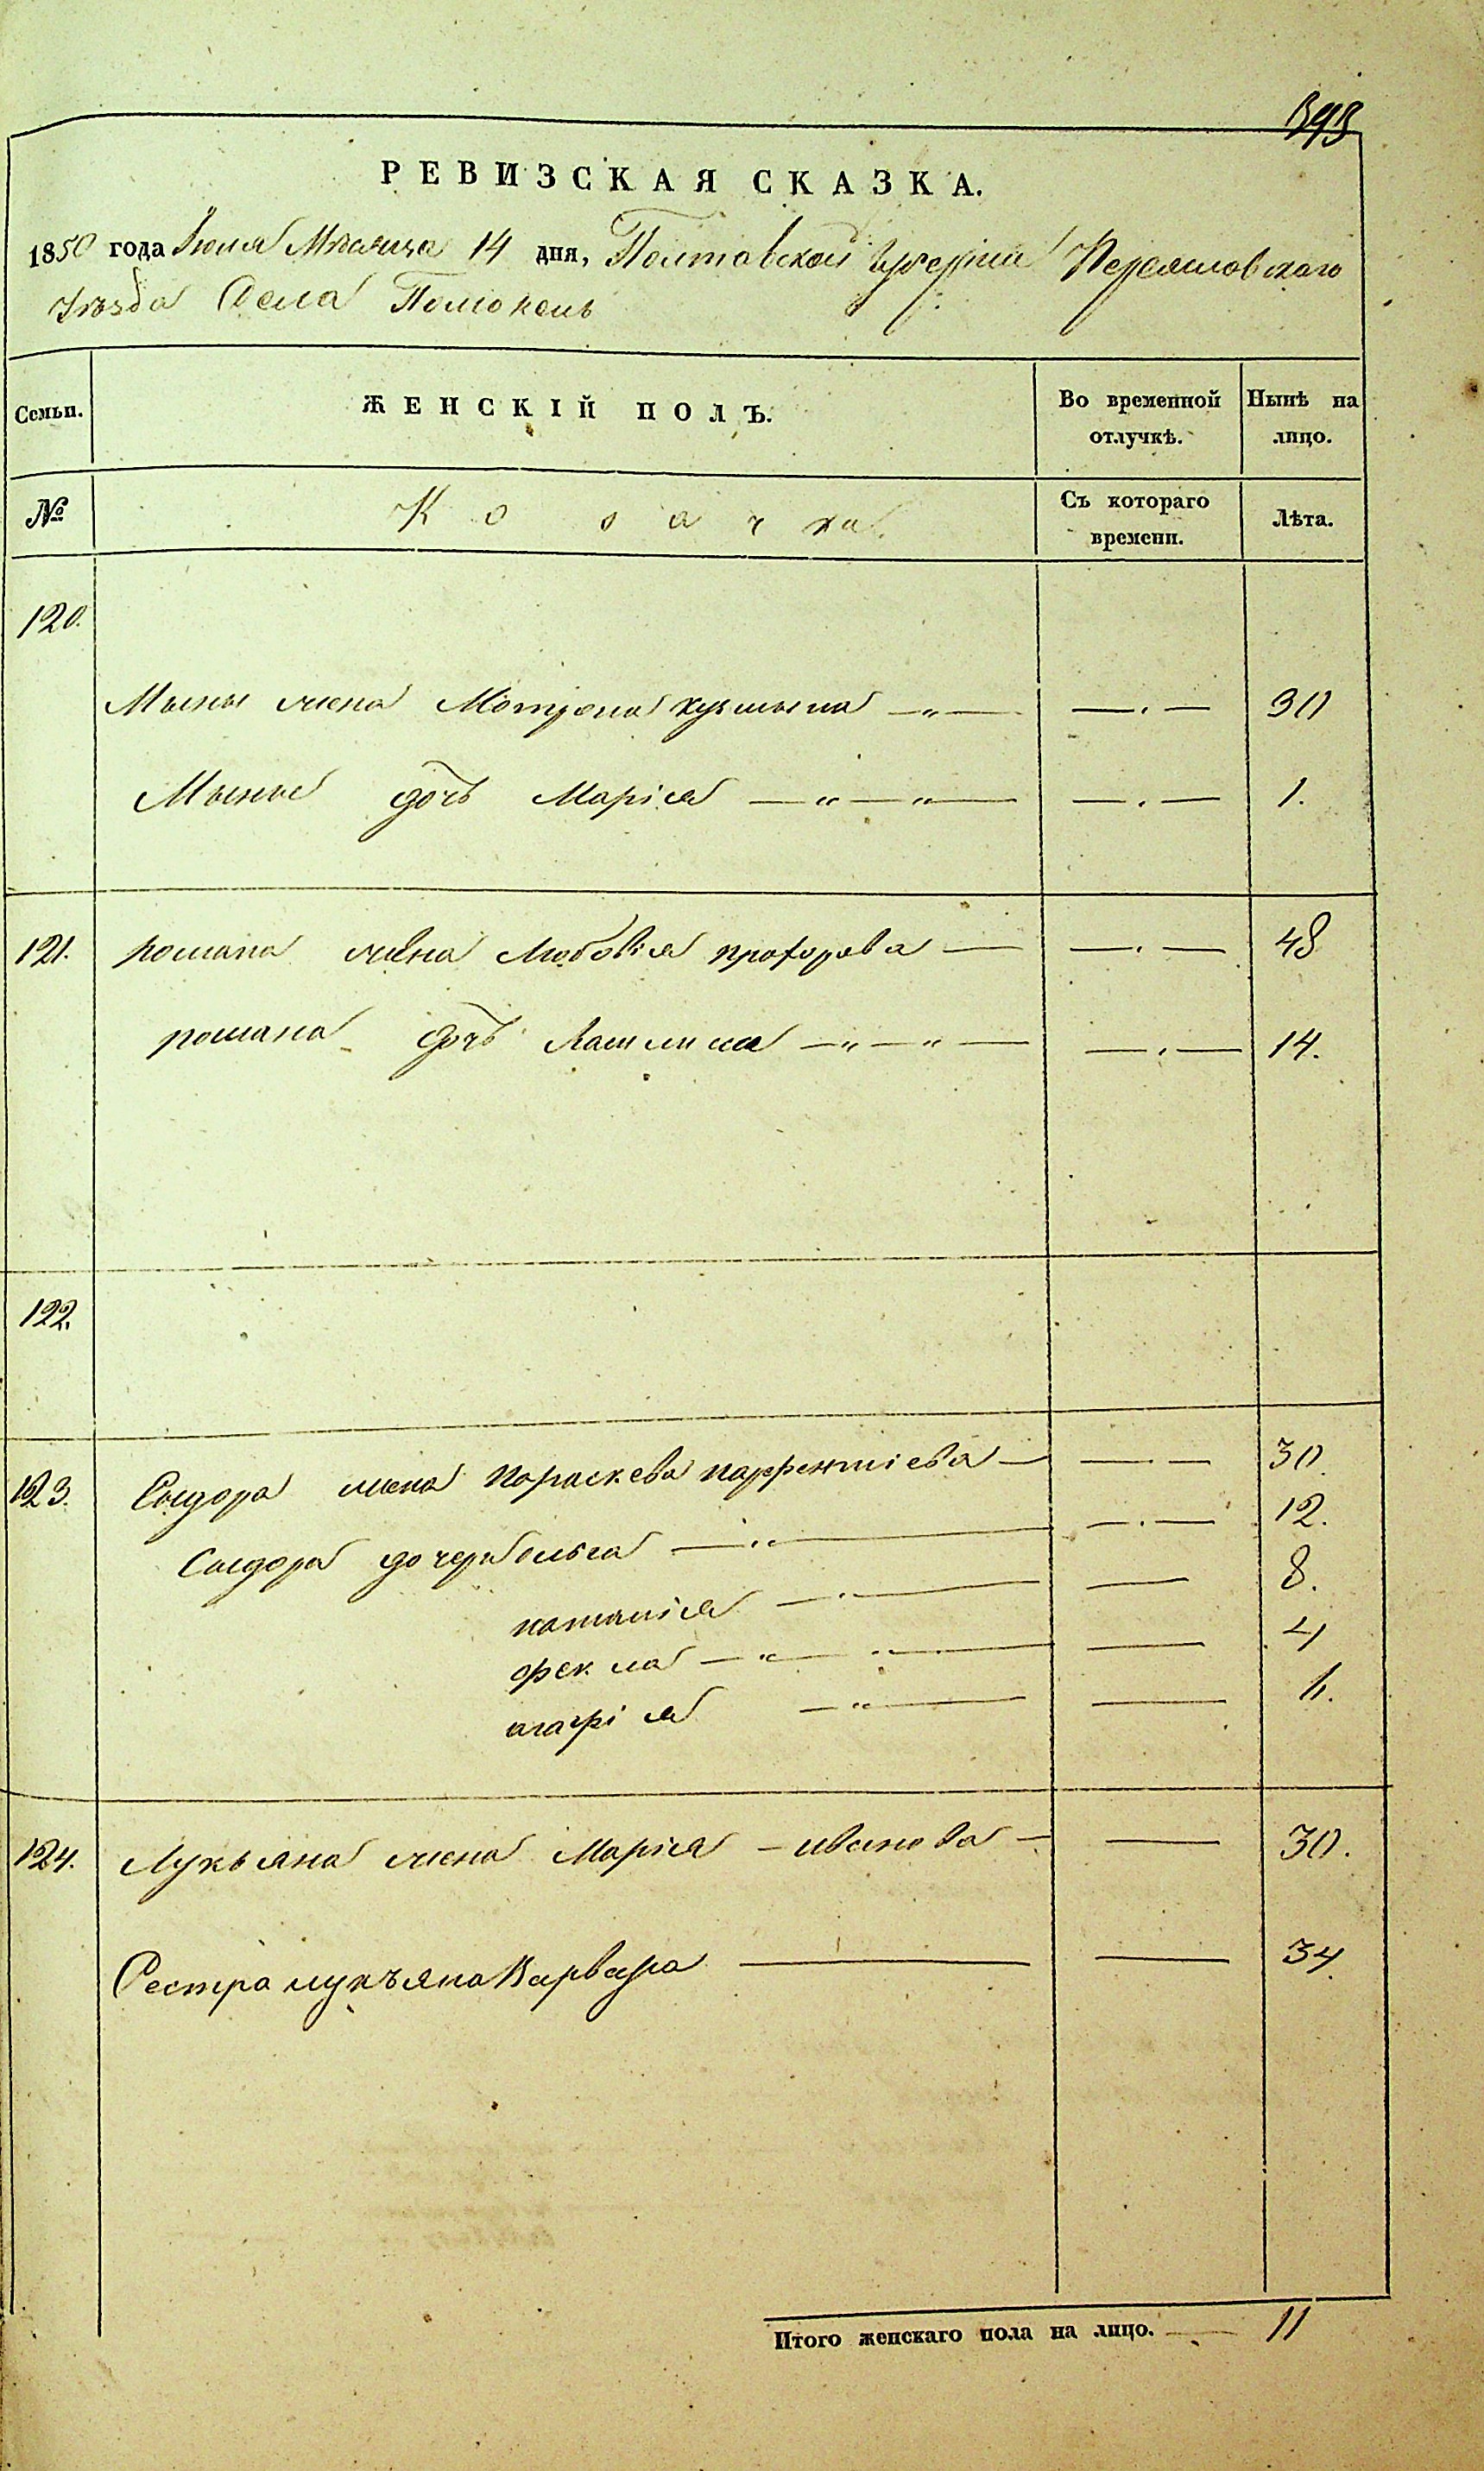 РЕВИЗСКАЯ СКАЗКА.
1850 года Іюля Мѣсяца 14 дня, Полтавской Губерніи Переяловскаго
Уѣзда Села Помоклъ
Семьи. ЖЕНСКІЙ ПОЛЪ. Во временной отлучкѣ. Нынѣ на лицо.
№ Козачка Съ котораго времени. Лѣта.
120.
Мины жена Мотрона кузмына — " — — . — 30
Мины дочь Марія — " — " — — . — 1.
121. романа жена Любовія прохорова — — . — 48
романа дочь — " — " — — . — 14.
122.
123. Сыдора жена Параскева парфентіева — — . — 30.
Сыдора дочери Ольга — " — — . — 12.
наталія — . — — 8.
фекла — " — " — — 4
агафія — " — — 1.
124. Лукьяна жена Марія — иванова — — 30.
Сестра лукъяна Варвара — — 34
Итого женскаго пола на лицо. — 11